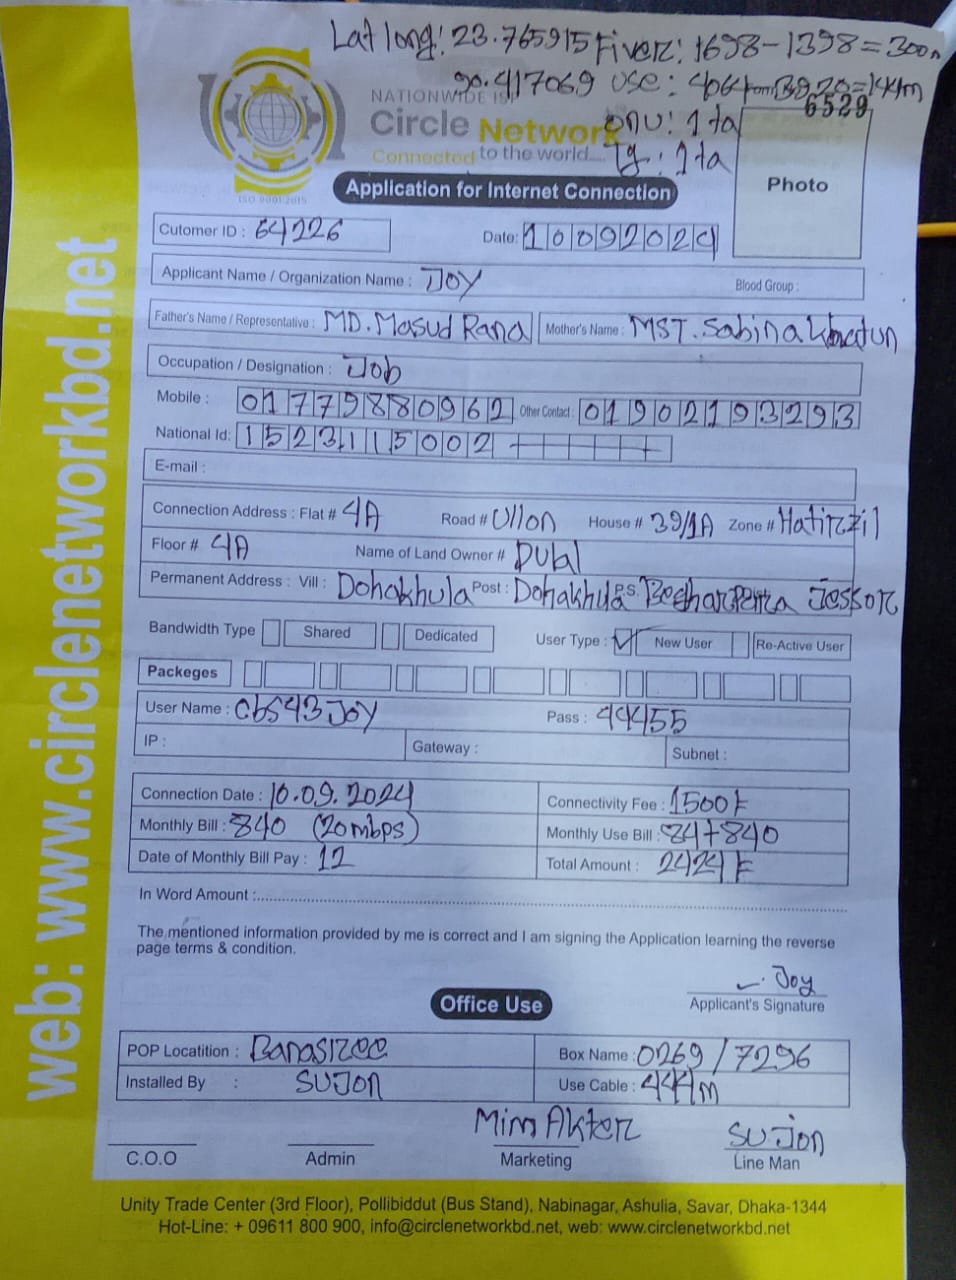 Lat long: 23.765915 Fiver: 1698-1398=300m
90.417069 use: 4064 from 3920=144m
6529
NATIONWIDE ISP
Circle Network
Connected to the world....
ISO 9001:2015
onu: 1 ta
Tj: 1 ta
Photo
Application for Internet Connection
Cutomer ID : 64226
Date: 10092024
Applicant Name / Organization Name : JOY Blood Group :
Father's Name / Representative : MD. Masud Rana Mother's Name : MST. Sabina khatun
Occupation / Designation : Job
Mobile : 01779880962 Other Contact : 01902193293
National Id: 1523115002
E-mail :
Connection Address : Flat # 4A Road # Ullon House # 39/1A Zone # Hatirzil
Floor # 4A Name of Land Owner # Dulal
Permanent Address : Vill : Dohakhula Post : Dohakhula P.S. Jessor
Bandwidth Type Shared Dedicated User Type : ✓ New User Re-Active User
Packeges
User Name : cbs43JOY Pass : 44455
IP : Gateway : Subnet :
Connection Date : 10.09.2024 Connectivity Fee : 1500৳
Monthly Bill : 840 (20mbps) Monthly Use Bill : 84+840
Date of Monthly Bill Pay : 12 Total Amount : 2424৳
In Word Amount :
The mentioned information provided by me is correct and I am signing the Application learning the reverse
page terms & condition.
Joy
Applicant's Signature
Office Use
POP Locatition : Banasree Box Name : 0269/7296
Installed By : SUJON Use Cable : 144m
Mim Akter SUJon
C.O.O Admin Marketing Line Man
Unity Trade Center (3rd Floor), Pollibiddut (Bus Stand), Nabinagar, Ashulia, Savar, Dhaka-1344
Hot-Line: + 09611 800 900, info@circlenetworkbd.net, web: www.circlenetworkbd.net
web: www.circlenetworkbd.net